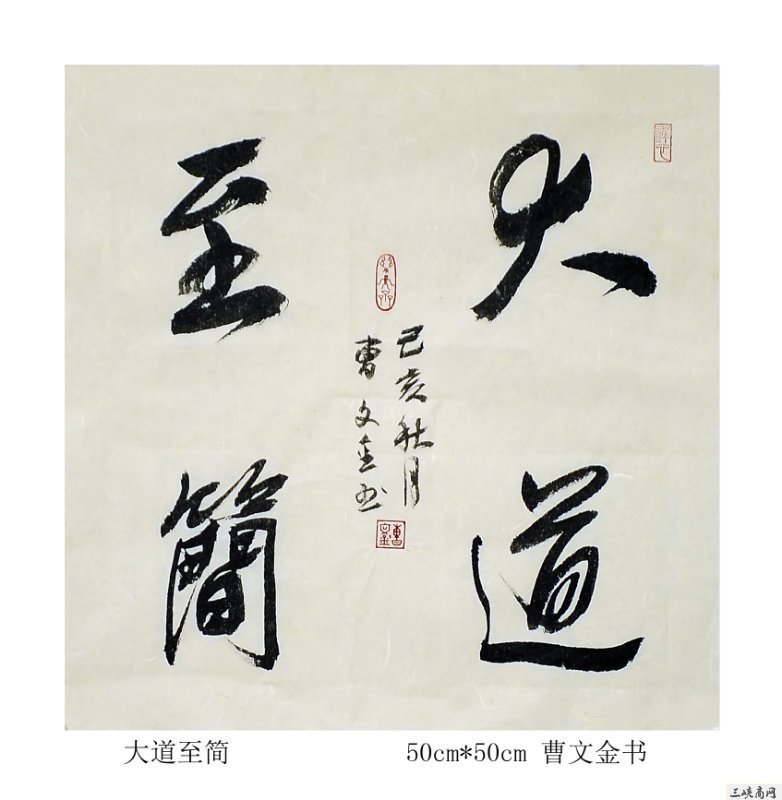 大道
至簡
己亥秋月
曹文金书
大道至简 50cm*50cm 曹文金书
三峡商网